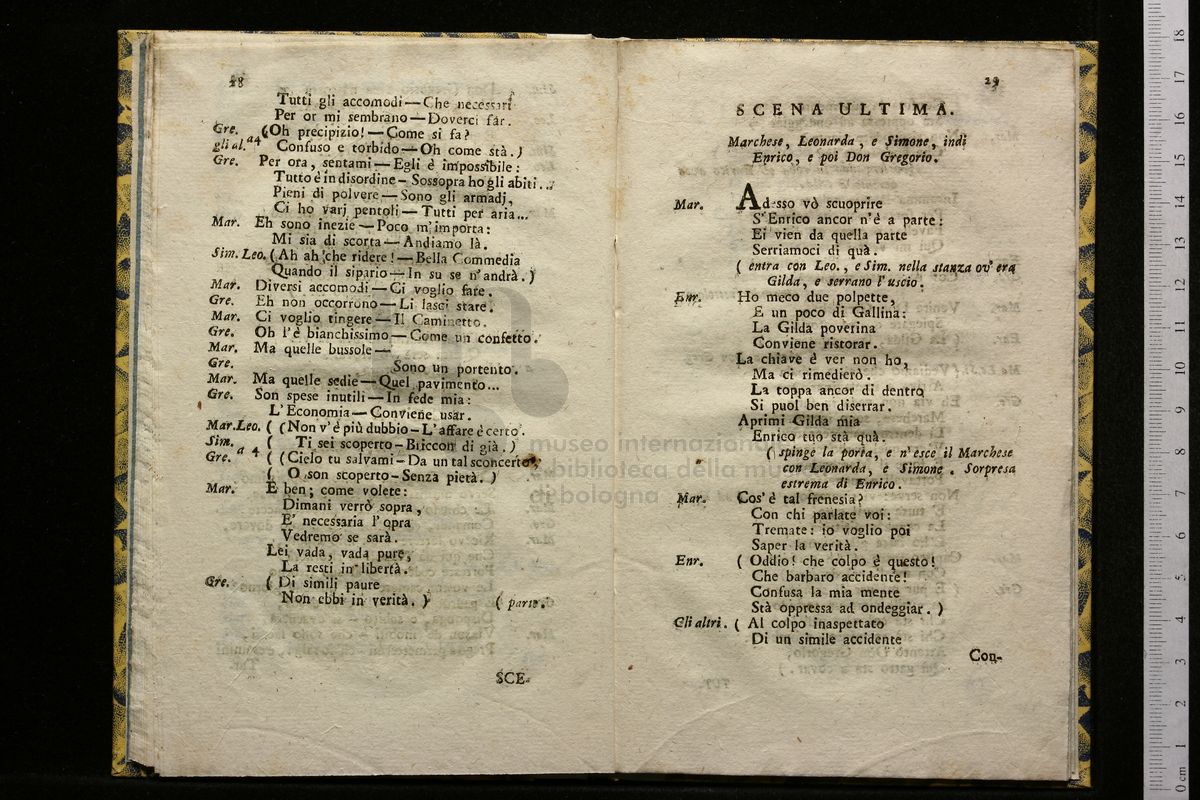 28
Tutti gli accomodi — Che necessarj
Per or mi sembrano — Doverci far.
Gre. (Oh precipizio! — Come si fa?
gli al. a 4 Confuso e torbido — Oh come stà.)
Gre. Per ora, sentami — Egli è impossibile:
Tutto è in disordine — Sossopra ho gli abiti...
Pieni di polvere — Sono gli armadj,
Ci ho varj pentoli — Tutti per aria...
Mar. Eh sono inezie — Poco m'importa:
Mi sia di scorta — Andiamo là.
Sim. Leo. (Ah ah che ridere! — Bella Commedia
Quando il sipario — In su se n'andrà.)
Mar. Diversi accomodi — Ci voglio fare.
Gre. Eh non occorrono — Li lasci stare.
Mar. Ci voglio tingere — Il Caminetto.
Gre. Oh l'è bianchissimo — Come un confetto.
Mar. Ma quelle bussole —
Gre. Sono un portento.
Mar. Ma quelle sedie — Quel pavimento...
Gre. Son spese inutili — In fede mia:
L'Economia — Conviene usar.
Mar. Leo. ( (Non v'è più dubbio — L'affare è certo.
Sim. ( Ti sei scoperto — Briccon di già.)
Gre. a 4 ( (Cielo tu salvami — Da un tal sconcerto,
( O son scoperto — Senza pietà.)
Mar. E ben; come volete:
Dimani verrò sopra,
E' necessaria l'opra
Vedremo se sarà.
Lei vada, vada pure,
La resti in libertà.
Gre. (Di simili paure
Non ebbi in verità.) (parte.
SCE-
29
SCENA ULTIMA.
Marchese, Leonarda, e Simone, indi
Enrico, e poi Don Gregorio.
Mar. Adesso vò scuoprire
S'Enrico ancor n'è a parte:
Ei vien da quella parte
Serriamoci di quà.
( entra con Leo., e Sim. nella stanza ov'era
Gilda, e serrano l'uscio.
Enr. Ho meco due polpette,
E un poco di Gallina:
La Gilda poverina
Conviene ristorar.
La chiave è ver non ho,
Ma ci rimedierò:
La toppa ancor di dentro
Si puol ben diserrar.
Aprimi Gilda mia
Enrico tuo stà quà.
( spinge la porta, e n'esce il Marchese
con Leonarda, e Simone. Sorpresa
estrema di Enrico.
Mar. Cos'è tal frenesia?
Con chi parlate voi:
Tremate: io voglio poi
Saper la verità.
Enr. (Oddio! che colpo è questo!
Che barbaro accidente!
Confusa la mia mente
Stà oppressa ad ondeggiar.)
Gli altri. (Al colpo inaspettato
Di un simile accidente
Con-
museo internazionale
e biblioteca della musica
di bologna
0 cm 1 2 3 4 5 6 7 8 9 10 11 12 13 14 15 16 17 18